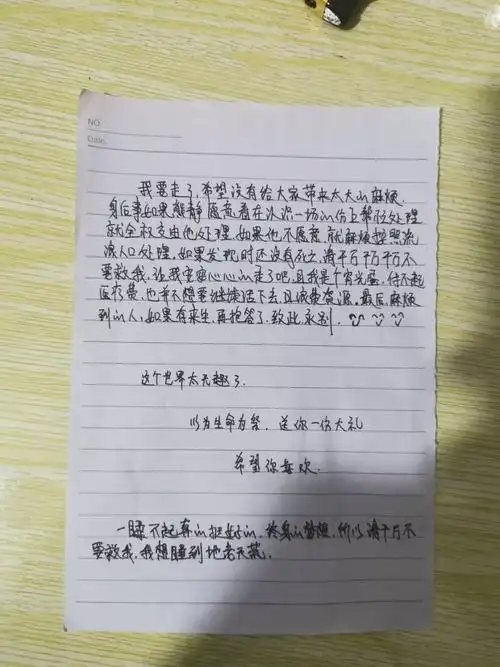 NO.
Date.
我要走了,希望没有给大家带来太大的麻烦.
身后事如果 静愿意看在 一场的份上帮忙处理
就全权交由他处理.如果他不愿意,就麻烦按照流
浪人口处理,如果发现时还没有死之,请千万千万不
要救我,让我 心心的走了吧,且我是个穷光蛋,付不起
医疗费,也并不想要继续活下去,且浪费资源.最后,麻烦
到的人,如果有来生,再报答了.致此,永别.
这个世界太无趣了.
以为生命为祭,送你一份大礼
希望你喜欢.
一睡不起真的挺好的,终身的梦想,所以请千万不
要救我,我想睡到地老天荒.